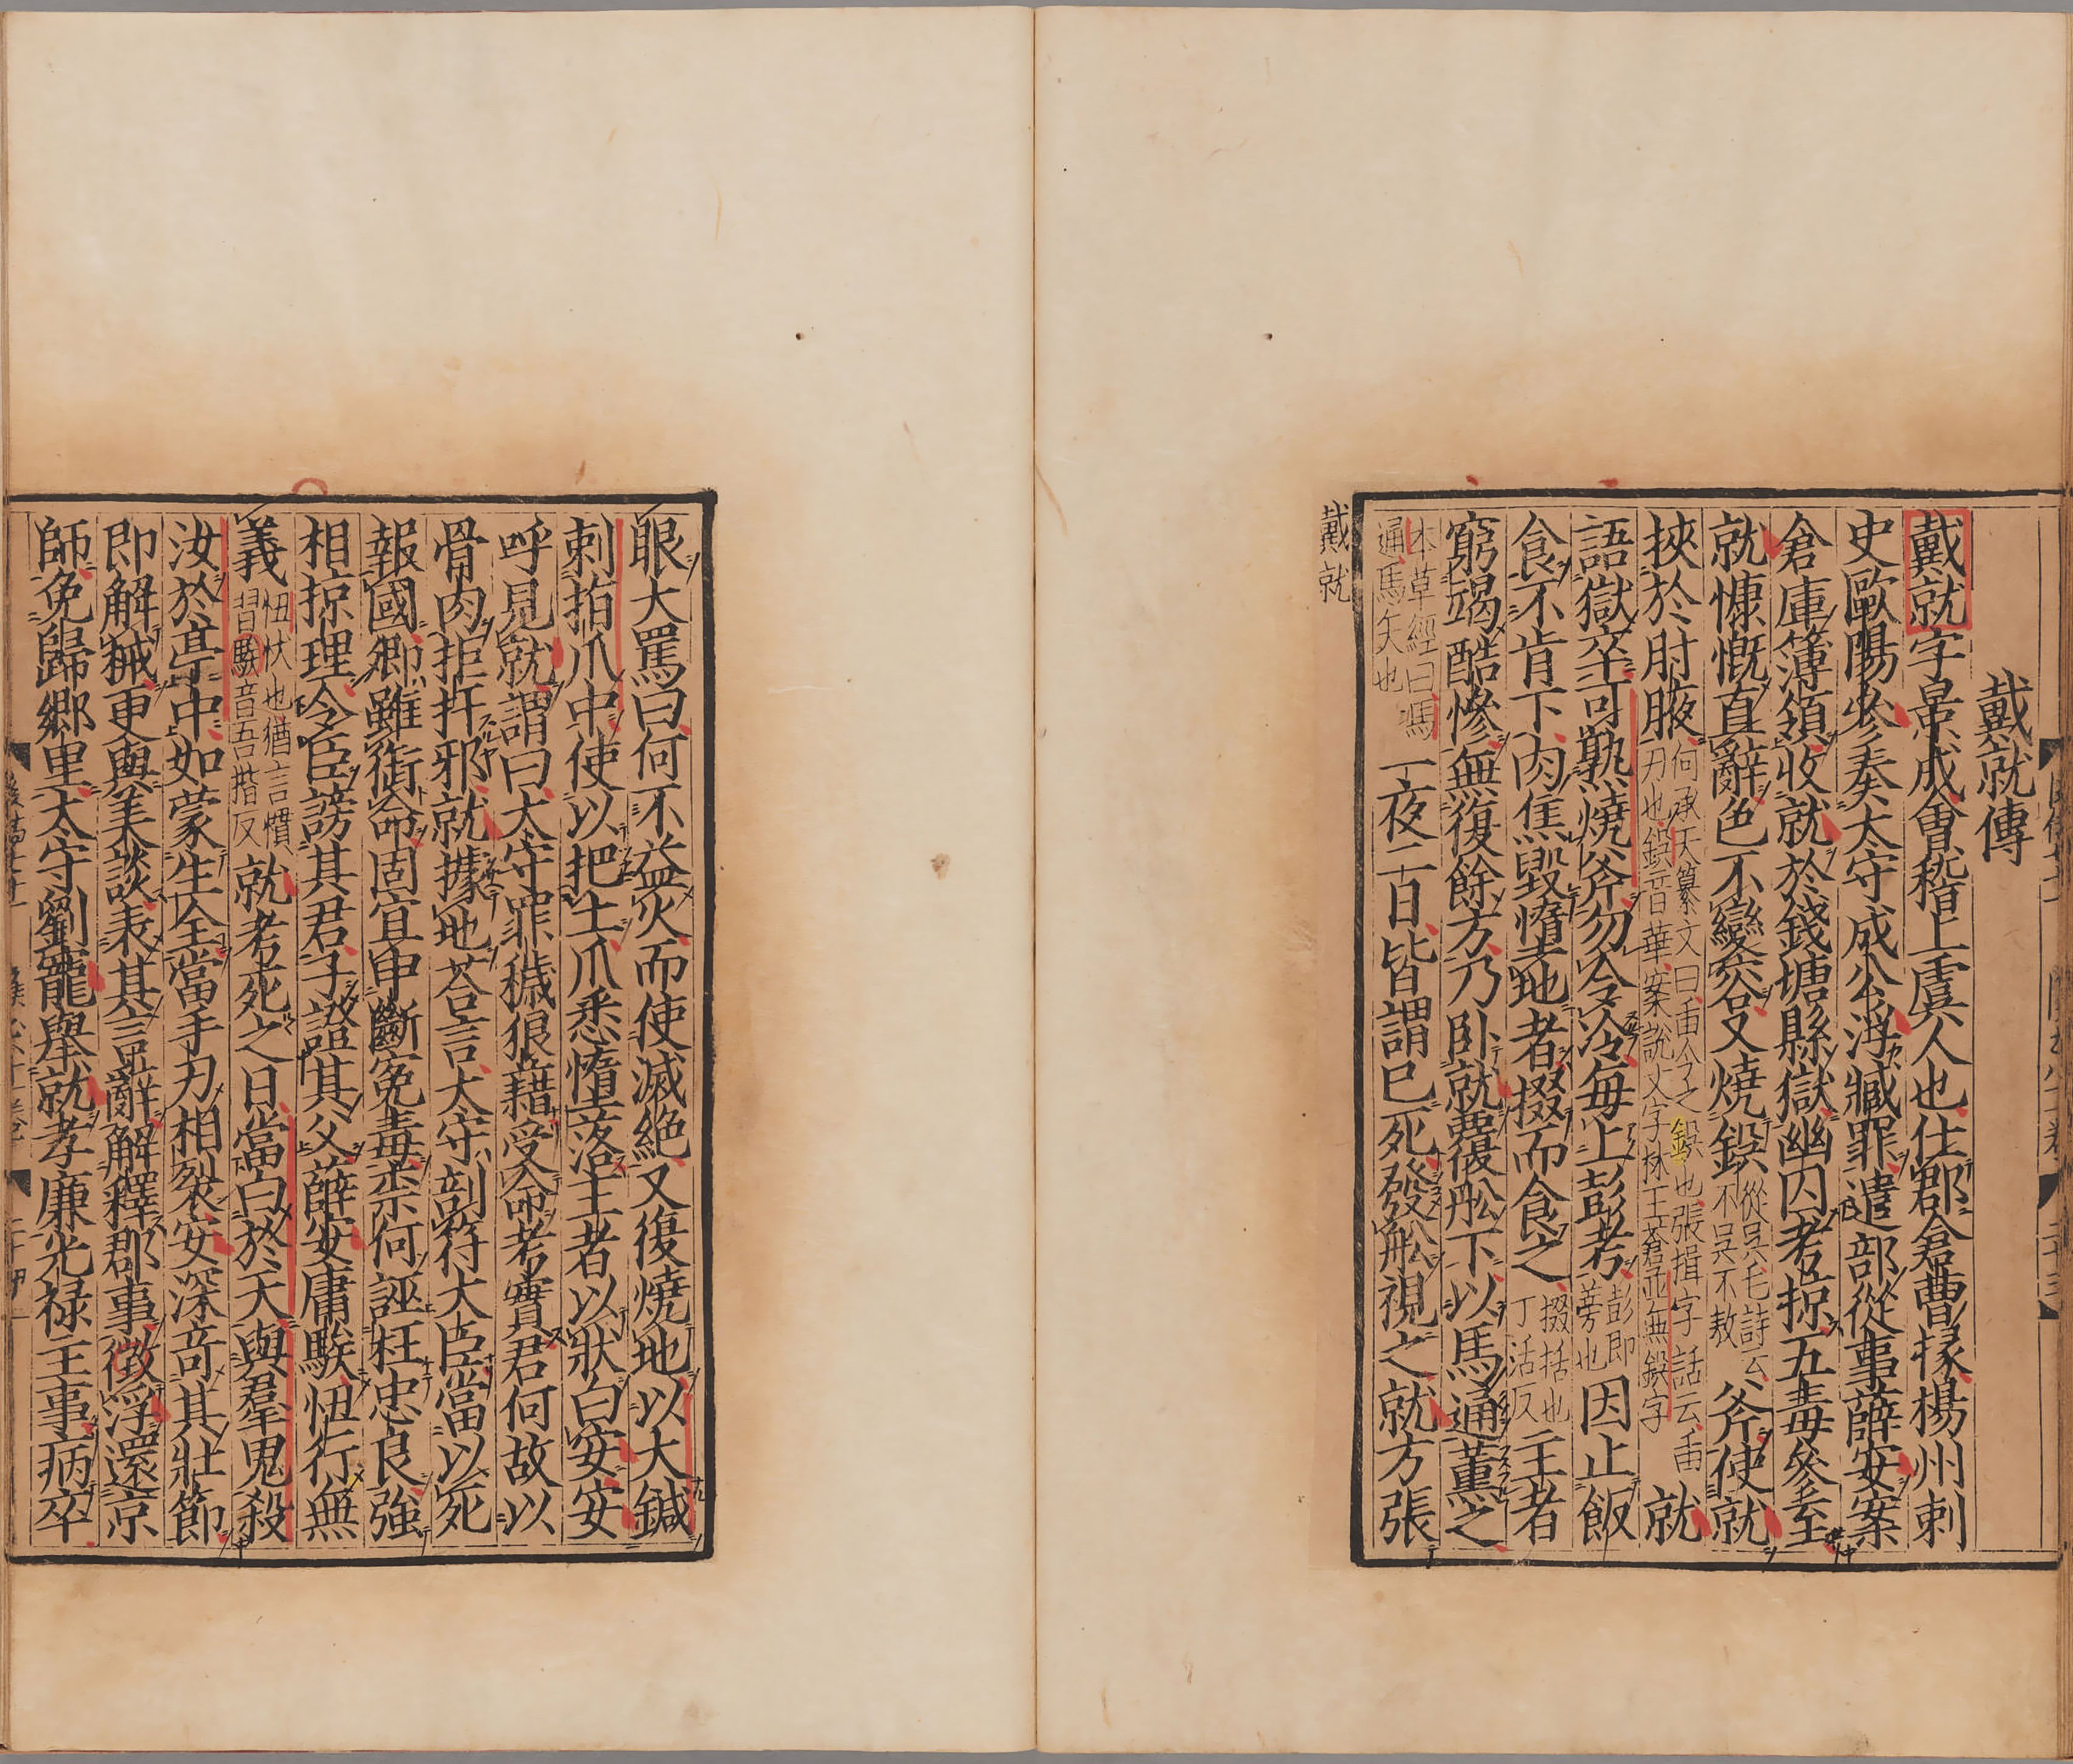 戴就傳
戴就字景成會稽上虞人也仕郡倉曹掾楊州刺
史歐陽參奏太守成公浮臧罪遣部從事薛安案
倉庫簿領收就於錢塘縣獄幽囚考掠五毒參至
就慷慨直辭色不變容又燒鋘從吳毛詩云不吳不敖斧使就
挾於肘腋何承天纂文曰臿今之鋘也張揖字詁云臿刃也鋘音華案說文字林三蒼並無鋘字就
語獄卒可熟燒斧勿令冷每上彭考彭即蒡也因止飯
食不肯下肉焦毀墮地者掇而食之掇拾也丁活反主者
窮竭酷慘無復餘方乃臥就覆船下以馬通薰之
本草經曰馬通馬矢也一夜二日皆謂已死發船視之就方張
戴就
眼大罵曰何不益火而使滅絕又復燒地以大鍼
刺指爪中使以把土爪悉墮落主者以狀白安安
呼見就謂曰太守罪穢狼藉受命考實君何故以
骨肉拒扞邪就據地荅言太守剖符大臣當以死
報國卿雖銜命固宜申斷冤毒柰何誣枉忠良強
相掠理令臣謗其君子證其父薛安庸騃忸行無
義忸忕也猶言慣習騃音吾揩反就考死之日當白於天與羣鬼殺
汝於亭中如蒙生全當手刃相裂安深奇其壯節
即解械更與美談表其言辭解釋郡事徵浮還京
師免歸鄉里太守劉寵舉就孝廉光祿主事病卒